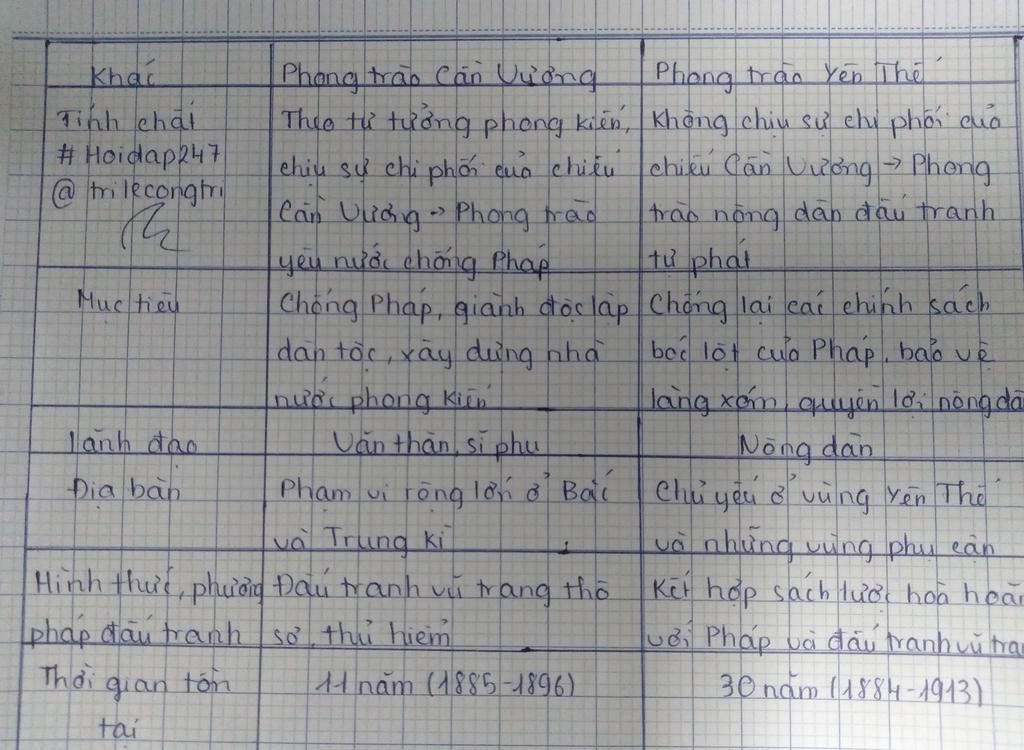 Khác
Phong trào Cần Vương
Phong trào Yên Thế
Tính chất
#Hoidap247
@trilecongtri
Theo tư tưởng phong kiến,
chịu sự chi phối của chiếu
Cần Vương → Phong trào
yêu nước chống Pháp
Không chịu sự chi phối của
chiếu Cần Vương → Phong
trào nông dân đấu tranh
tự phát
Mục tiêu
Chống Pháp, giành độc lập
dân tộc, xây dựng nhà
nước phong kiến
Chống lại các chính sách
bóc lột của Pháp, bảo vệ
làng xóm, quyền lợi nông dâ
lãnh đạo
Văn thân, sĩ phu
Nông dân
Địa bàn
Phạm vi rộng lớn ở Bắc
và Trung kì
Chủ yếu ở vùng Yên Thế
và những vùng phụ cận
Hình thức, phương
pháp đấu tranh
Đấu tranh vũ trang thô
sơ, thủ hiểm
Kết hợp sách lược hoà hoãn
với Pháp và đấu tranh vũ tra
Thời gian tồn
tại
11 năm (1885-1896)
30 năm (1884-1913)